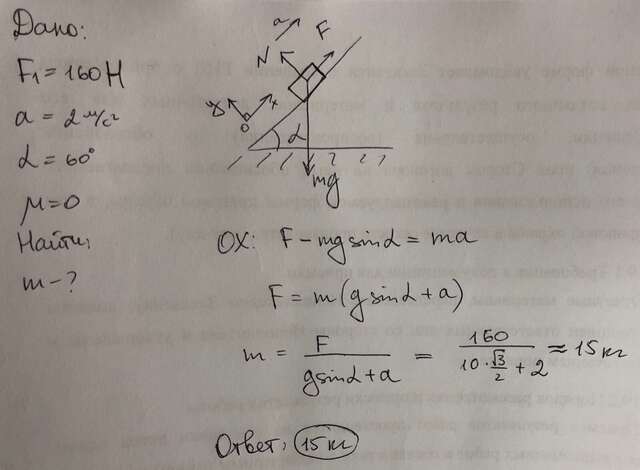 Дано:
F₁ = 160 Н
a = 2 м/с²
α = 60°
μ = 0
Найти:
m - ?
a
F
N
y
x
O
α
mg
OX: F - mg sinα = ma
F = m(g sinα + a)
m = F / (g sinα + a) = 160 / (10 · √3/2 + 2) ≈ 15 кг
Ответ: 15 кг